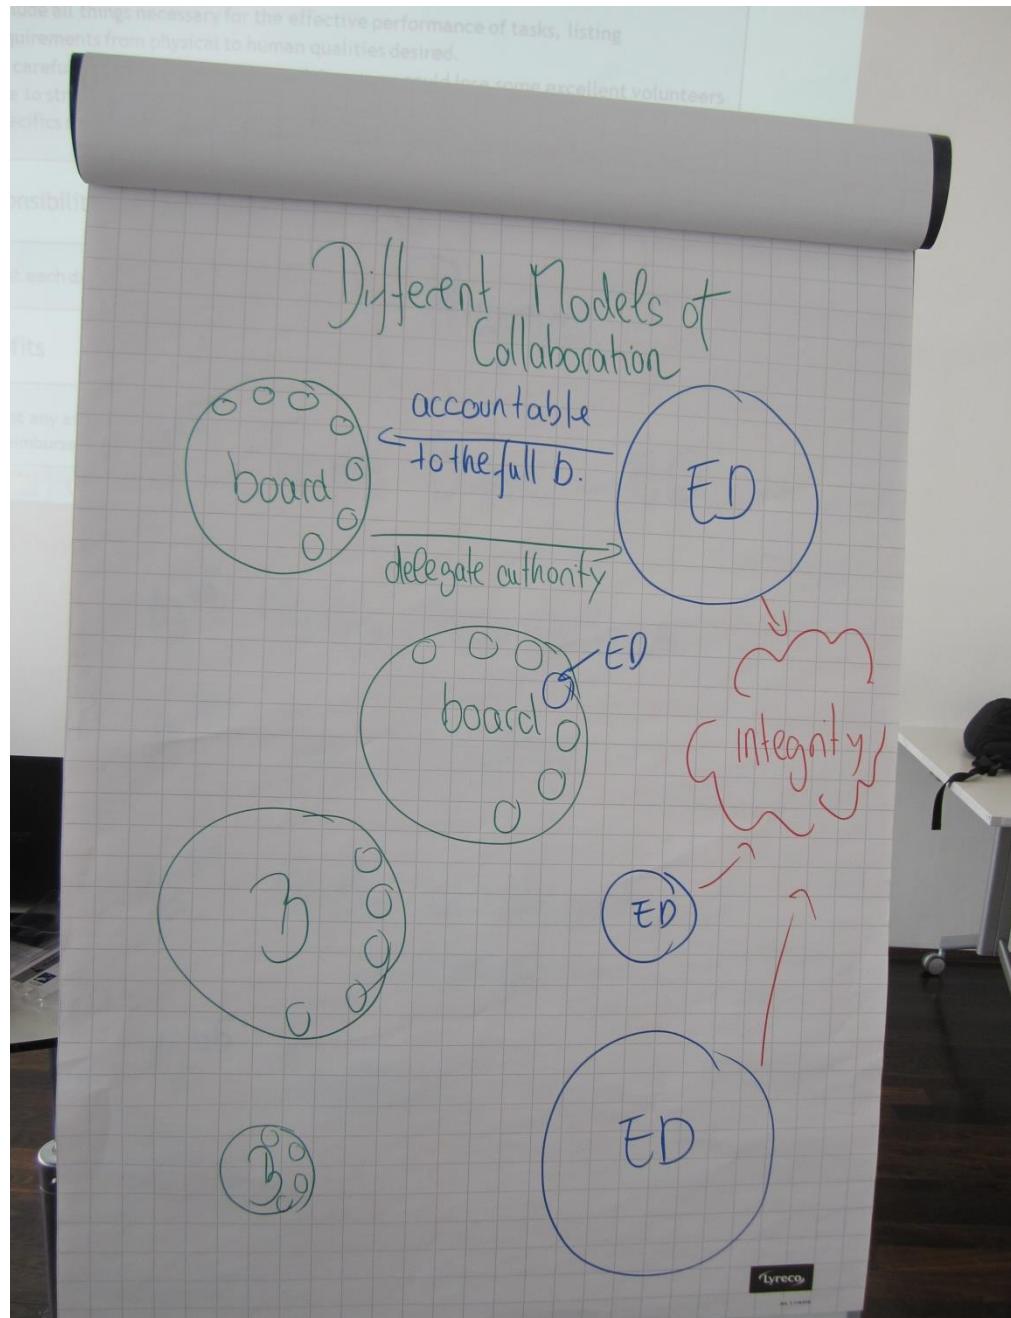 ude all things necessary for the effective performance of tasks, listing
quirements from physical to human qualities desired.
some excellent volunteers
Different Models of
Collaboration
accountable
to the full b.
board
ED
delegate authority
ED
board
integrity
B
ED
B
ED
Lyreco